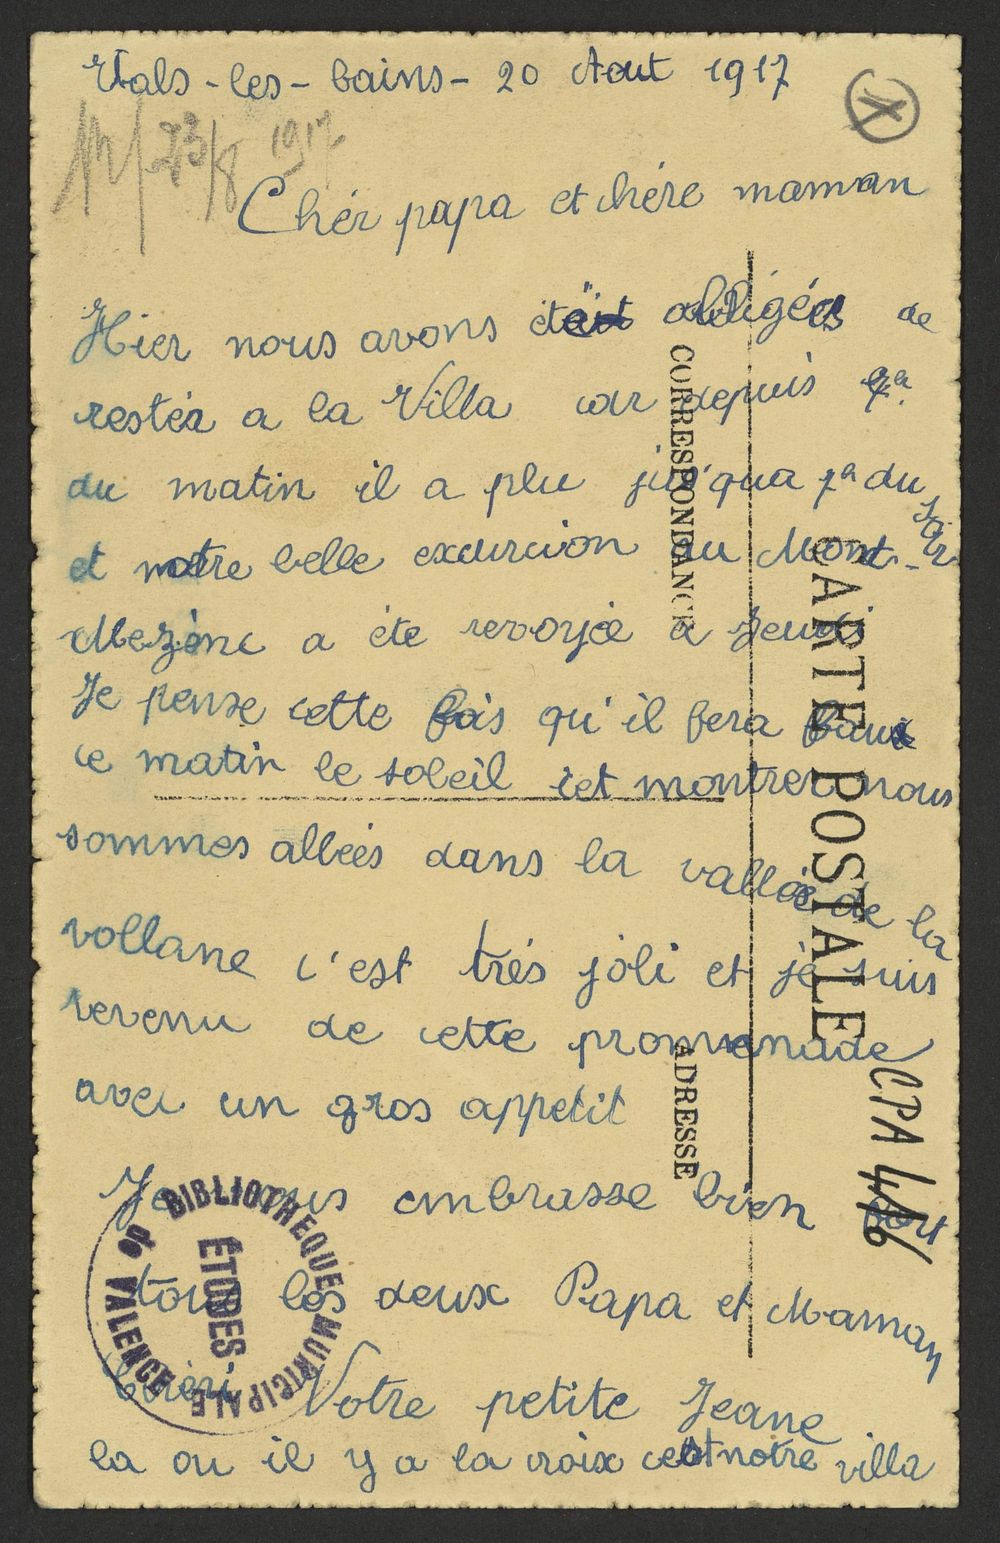 Vals-les-bains- 20 Aout 1917
23/8 1917
Chér papa et chére maman
Hier nous avons été obligées de
restér a la Villa car depuis 9h
du matin il a plu jusqua 7h du soir
et notre belle excurcion au Mont-
Mezènc a éte revoyée a Jeudi
Je pense cette fois qu'il fera beau
ce matin le soleil cet montrer nous
sommes alleés dans la vallée de la
vollane c'est trés joli et je suis
revenu de cette promenade
avec un gros appetit
Je vous embrasse bien fort
tous les deux Papa et Maman
Chéri Votre petite Jeane
la ou il y a la croix cest notre villa
CORRESPONDANCE
CARTE POSTALE
ADRESSE
CPA 416
BIBLIOTHEQUE MUNICIPALE
de VALENCE
ÉTUDES